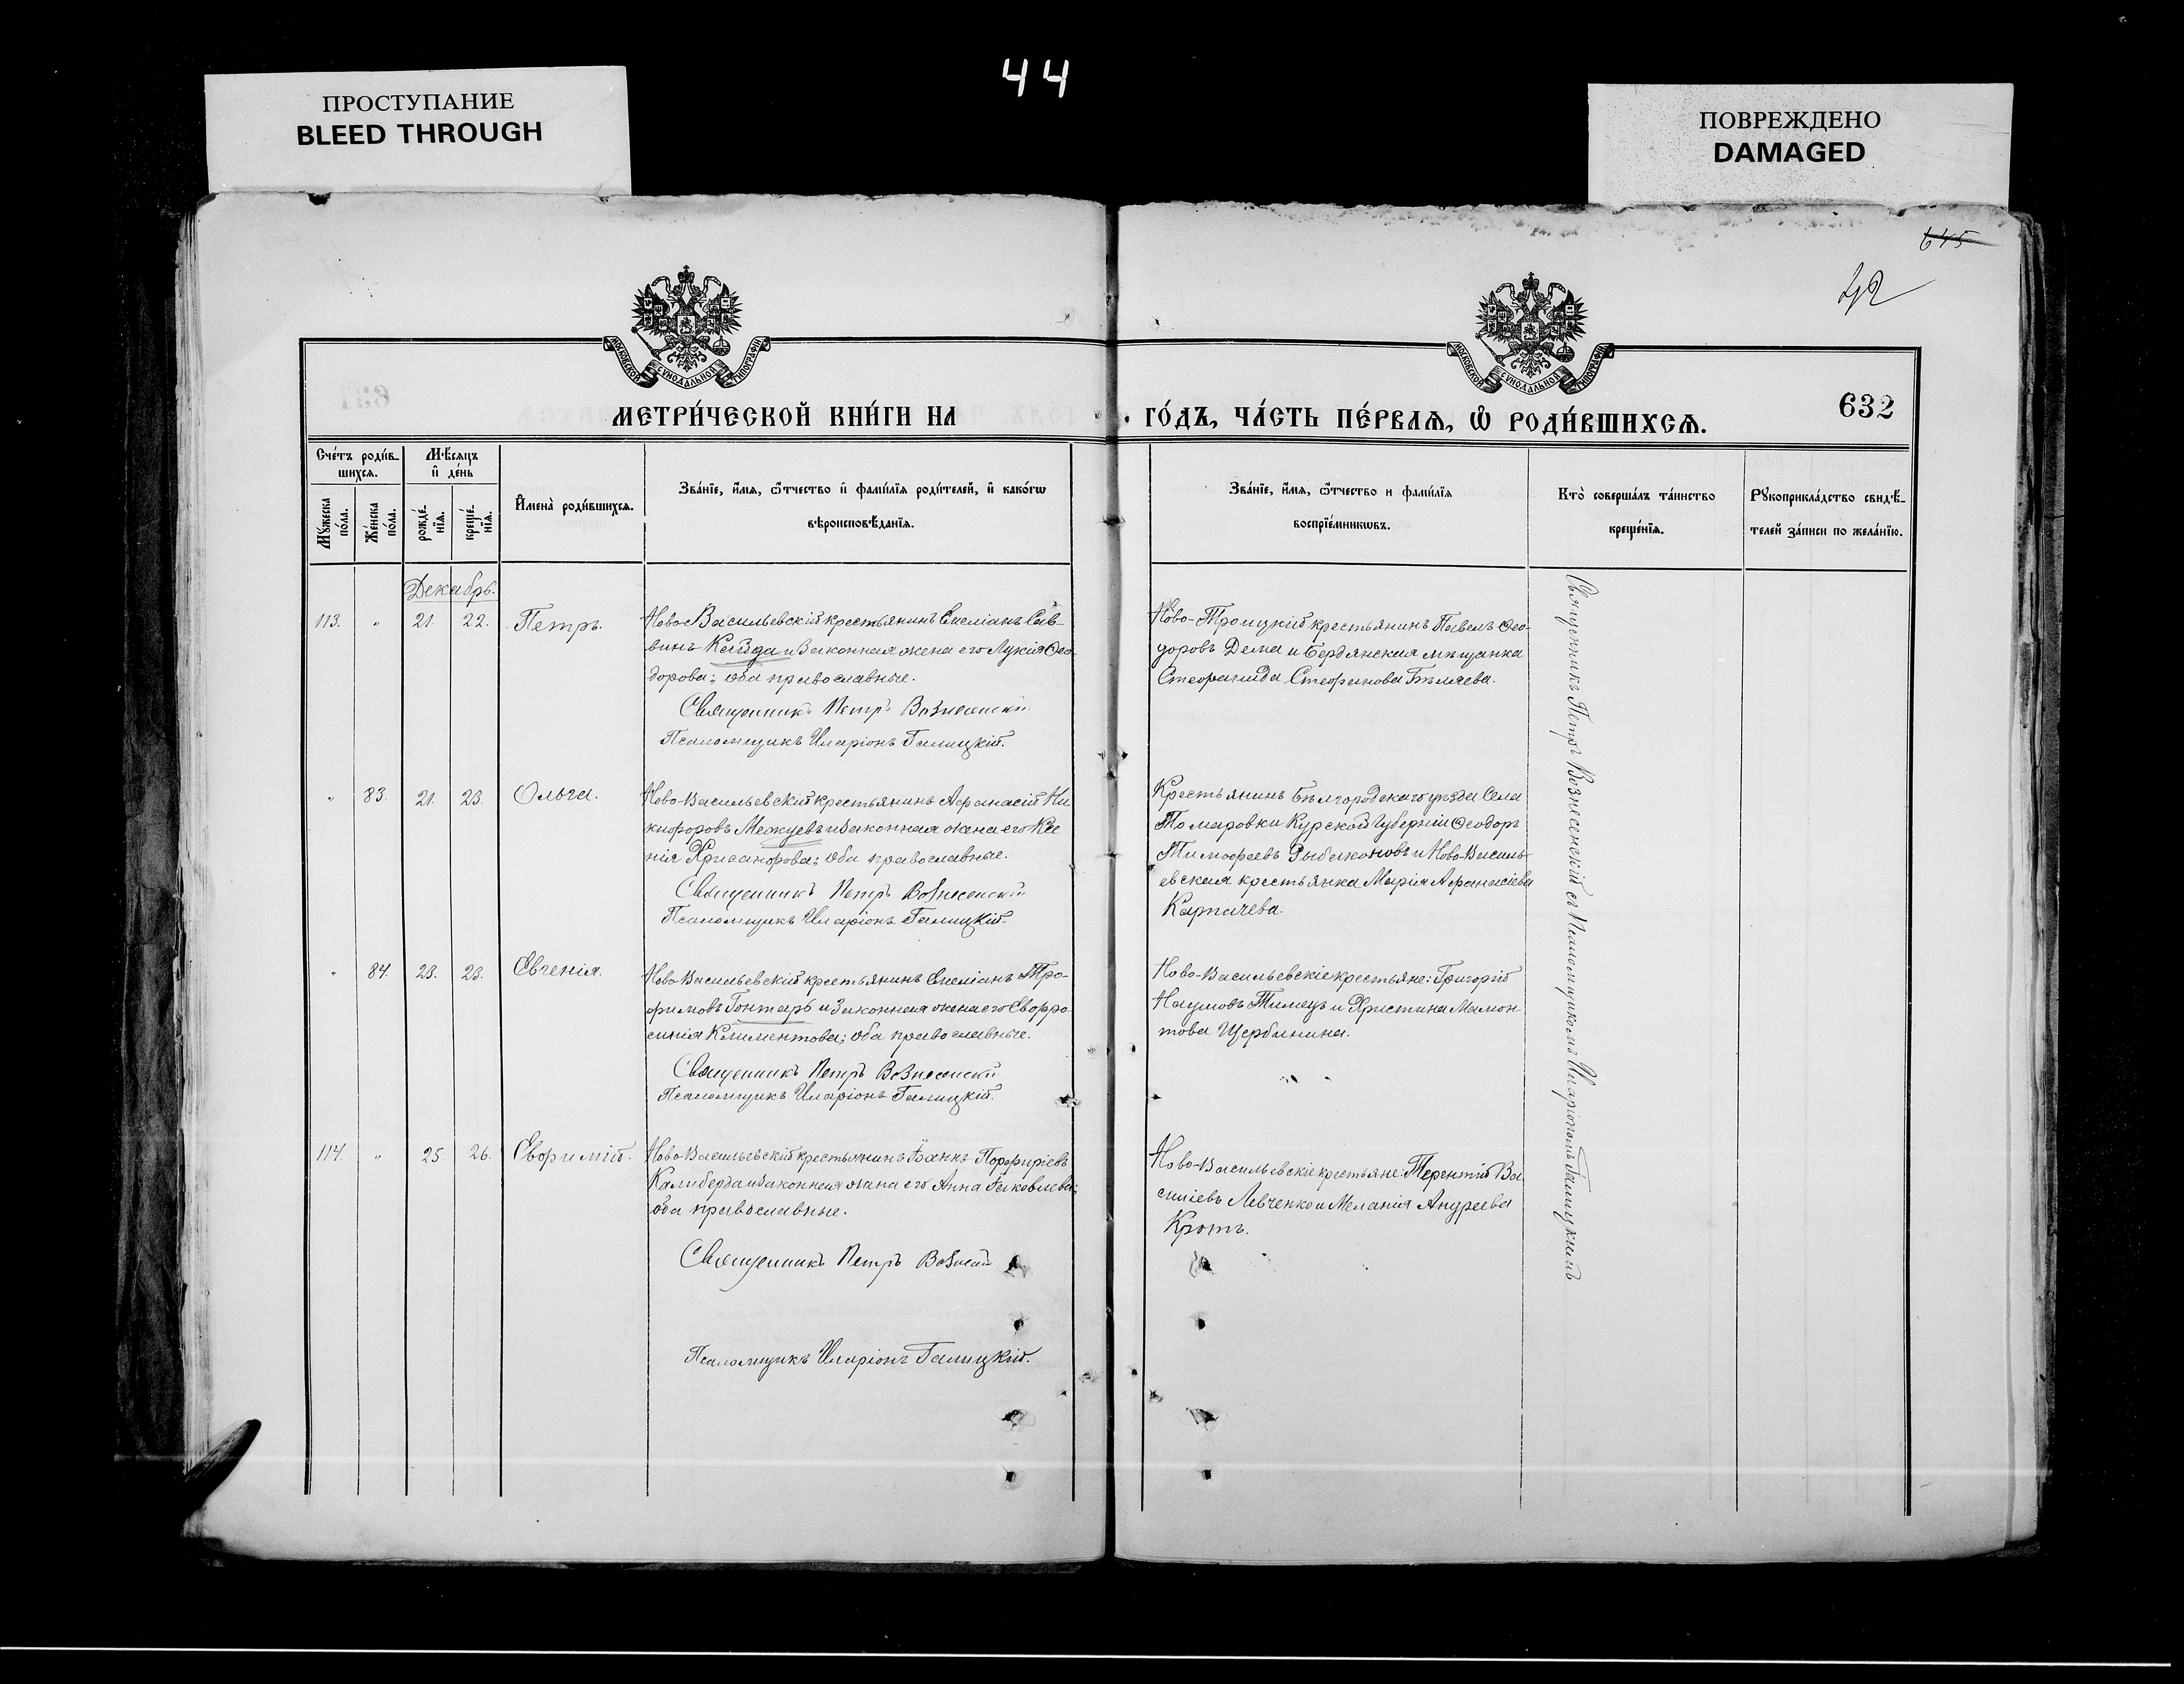 44
ПРОСТУПАНИЕ
BLEED THROUGH
ПОВРЕЖДЕНО
DAMAGED
645
МОСКОВСКОЙ СѴНОДАЛЬНОЙ ТИПОГРАФІИ
МОСКОВСКОЙ СѴНОДАЛЬНОЙ ТИПОГРАФІИ
632
МЕТРИ́ЧЕСКОЙ КНИ́ГИ НА
ГО́ДЪ, ЧА́СТЬ ПЕ́РВАѦ, Ѡ҆ РОДИ́ВШИХСѦ.
Сче́тъ роди́в-
шихсѧ.
Мꙋ́жеска
по́ла.
Же́нска
по́ла.
Мѣ́сѧцъ
и҆ де́нь
рожде́-
нїѧ.
креще́-
нїѧ.
И҆мена̀ роди́вшихсѧ.
Зва́нїе, и҆́мѧ, ѻ҆́тчество и҆ фами́лїѧ роди́телей, и҆ како́гѡ
вѣроисповѣ́данїѧ.
Зва́нїе, и҆́мѧ, ѻ҆́тчество и фами́лїѧ
воспрїе́мникѡвъ.
Кто̀ соверша́лъ та́инство
креще́нїѧ.
Рꙋкоприкла́дство свидѣ́-
телей за́писи по жела́нїю.
Декабрь.
113. " 21. 22. Петръ.
Ново-Васильевскій крестьянинъ Емеліанъ Сав-
винъ Кайда и законная жена его Лукія Ѳео-
дорова; оба православные.
Священникъ Петръ Вознесенскій
Псаломщикъ Иларіонъ Галицкій.
Ново-Троицкій крестьянинъ Павелъ Ѳео-
доровъ Дема и Бердянская мѣщанка
Стефанида Стефанова Бѣляева.
" 83. 21. 23. Ольга.
Ново-Васильевскій крестьянинъ Аѳанасій Ни
кифоровъ Межуевъ и законная жена его Ксе
нія Хрисанфова; оба православные.
Священникъ Петръ Вознесенскій
Псаломщикъ Иларіонъ Галицкій.
Крестьянинъ Бѣлгородскаго уѣзда Села
Томаровки Курской Губерніи Ѳеодоръ
Тимофеевъ Рыбалковъ и Ново-Василь-
евская крестьянка Марія Аѳанасіева
Карпачева.
" 84. 23. 23. Евгенія.
Ново-Васильевскій крестьянинъ Емеліанъ Тро-
фимовъ Гонтарь и законная жена его Евфро
синія Климентова; оба православные.
Священникъ Петръ Вознесенскій
Псаломщикъ Иларіонъ Галицкій.
Ново-Васильевскіе крестьяне: Григорій
Наумовъ Тимецъ и Христина Мамон
това Щербинина.
114. " 25. 26. Евфимій.
Ново-Васильевскій крестьянинъ Іоаннъ Порфиріевъ
Калиберда и законная жена его Анна Іаковлева;
оба православные.
Священникъ Петръ
Псаломщикъ Иларіонъ Галицкій.
Ново-Васильевскіе крестьяне: Терентій Ва
силіевъ Левченко и Меланія Андреева
Кротъ.
Священникъ Петръ Вознесенскій съ Псаломщикомъ Иларіономъ Галицкимъ